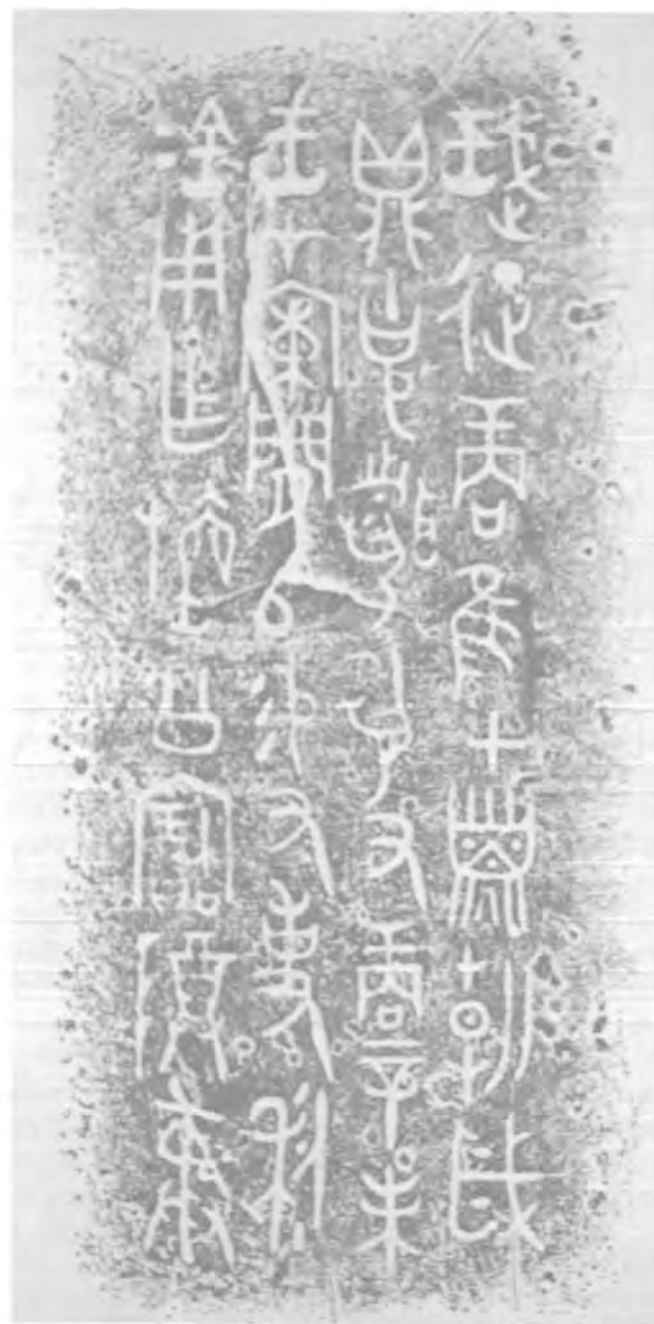 珷征商隹甲子朝歲
鼎克聞夙又商辛未
王才𫔂𠂤易又事利
金用乍𣄰公寶尊彝